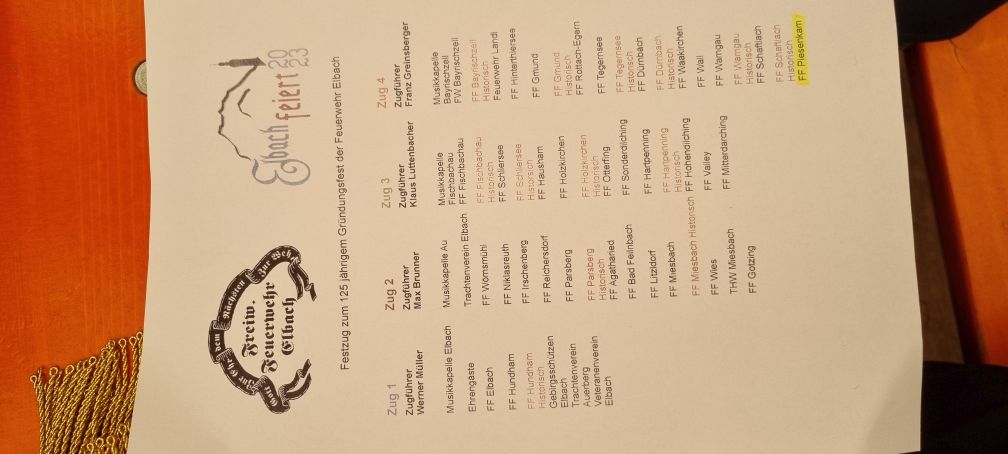 Gott zur Ehr dem Nächsten zur Weh
Freiw.
Feuerwehr
Elbach
Elbach
feiert
20
23
Festzug zum 125 jährigem Gründungsfest der Feuerwehr Elbach
Zug 1
Zugführer
Werner Müller
Musikkapelle Elbach
Ehrengäste
FF Elbach
FF Hundham
FF Hundham
Historisch
Gebirgsschützen
Elbach
Trachtenverein
Auerberg
Veteranenverein
Elbach
Zug 2
Zugführer
Max Brunner
Musikkapelle Au
Trachtenverein Elbach
FF Wörnsmühl
FF Niklasreuth
FF Irschenberg
FF Reichersdorf
FF Parsberg
FF Parsberg
Historisch
FF Agatharied
FF Bad Feilnbach
FF Litzldorf
FF Miesbach
FF Miesbach Historisch
FF Wies
THW Miesbach
FF Gotzing
Zug 3
Zugführer
Klaus Luttenbacher
Musikkapelle
Fischbachau
FF Fischbachau
FF Fischbachau
Historisch
FF Schliersee
FF Schliersee
Historsich
FF Hausham
FF Holzkirchen
FF Holzkirchen
Historisch
FF Otterfing
FF Sonderdilching
FF Hartpenning
FF Hartpenning
Historisch
FF Hohendilching
FF Valley
FF Mitterdarching
Zug 4
Zugführer
Franz Greinsberger
Musikkapelle
Bayrischzell
FW Bayrischzell
FF Bayrischzell
Historisch
Feuerwehr Landl
FF Hinterthiersee
FF Gmund
FF Gmund
Historisch
FF Rottach-Egern
FF Tegernsee
FF Tegernsee
Historisch
FF Dürnbach
FF Dürnbach
Historisch
FF Waakirchen
FF Wall
FF Warngau
FF Warngau
Historisch
FF Schaftlach
FF Schaftlach
Historisch
FF Piesenkam